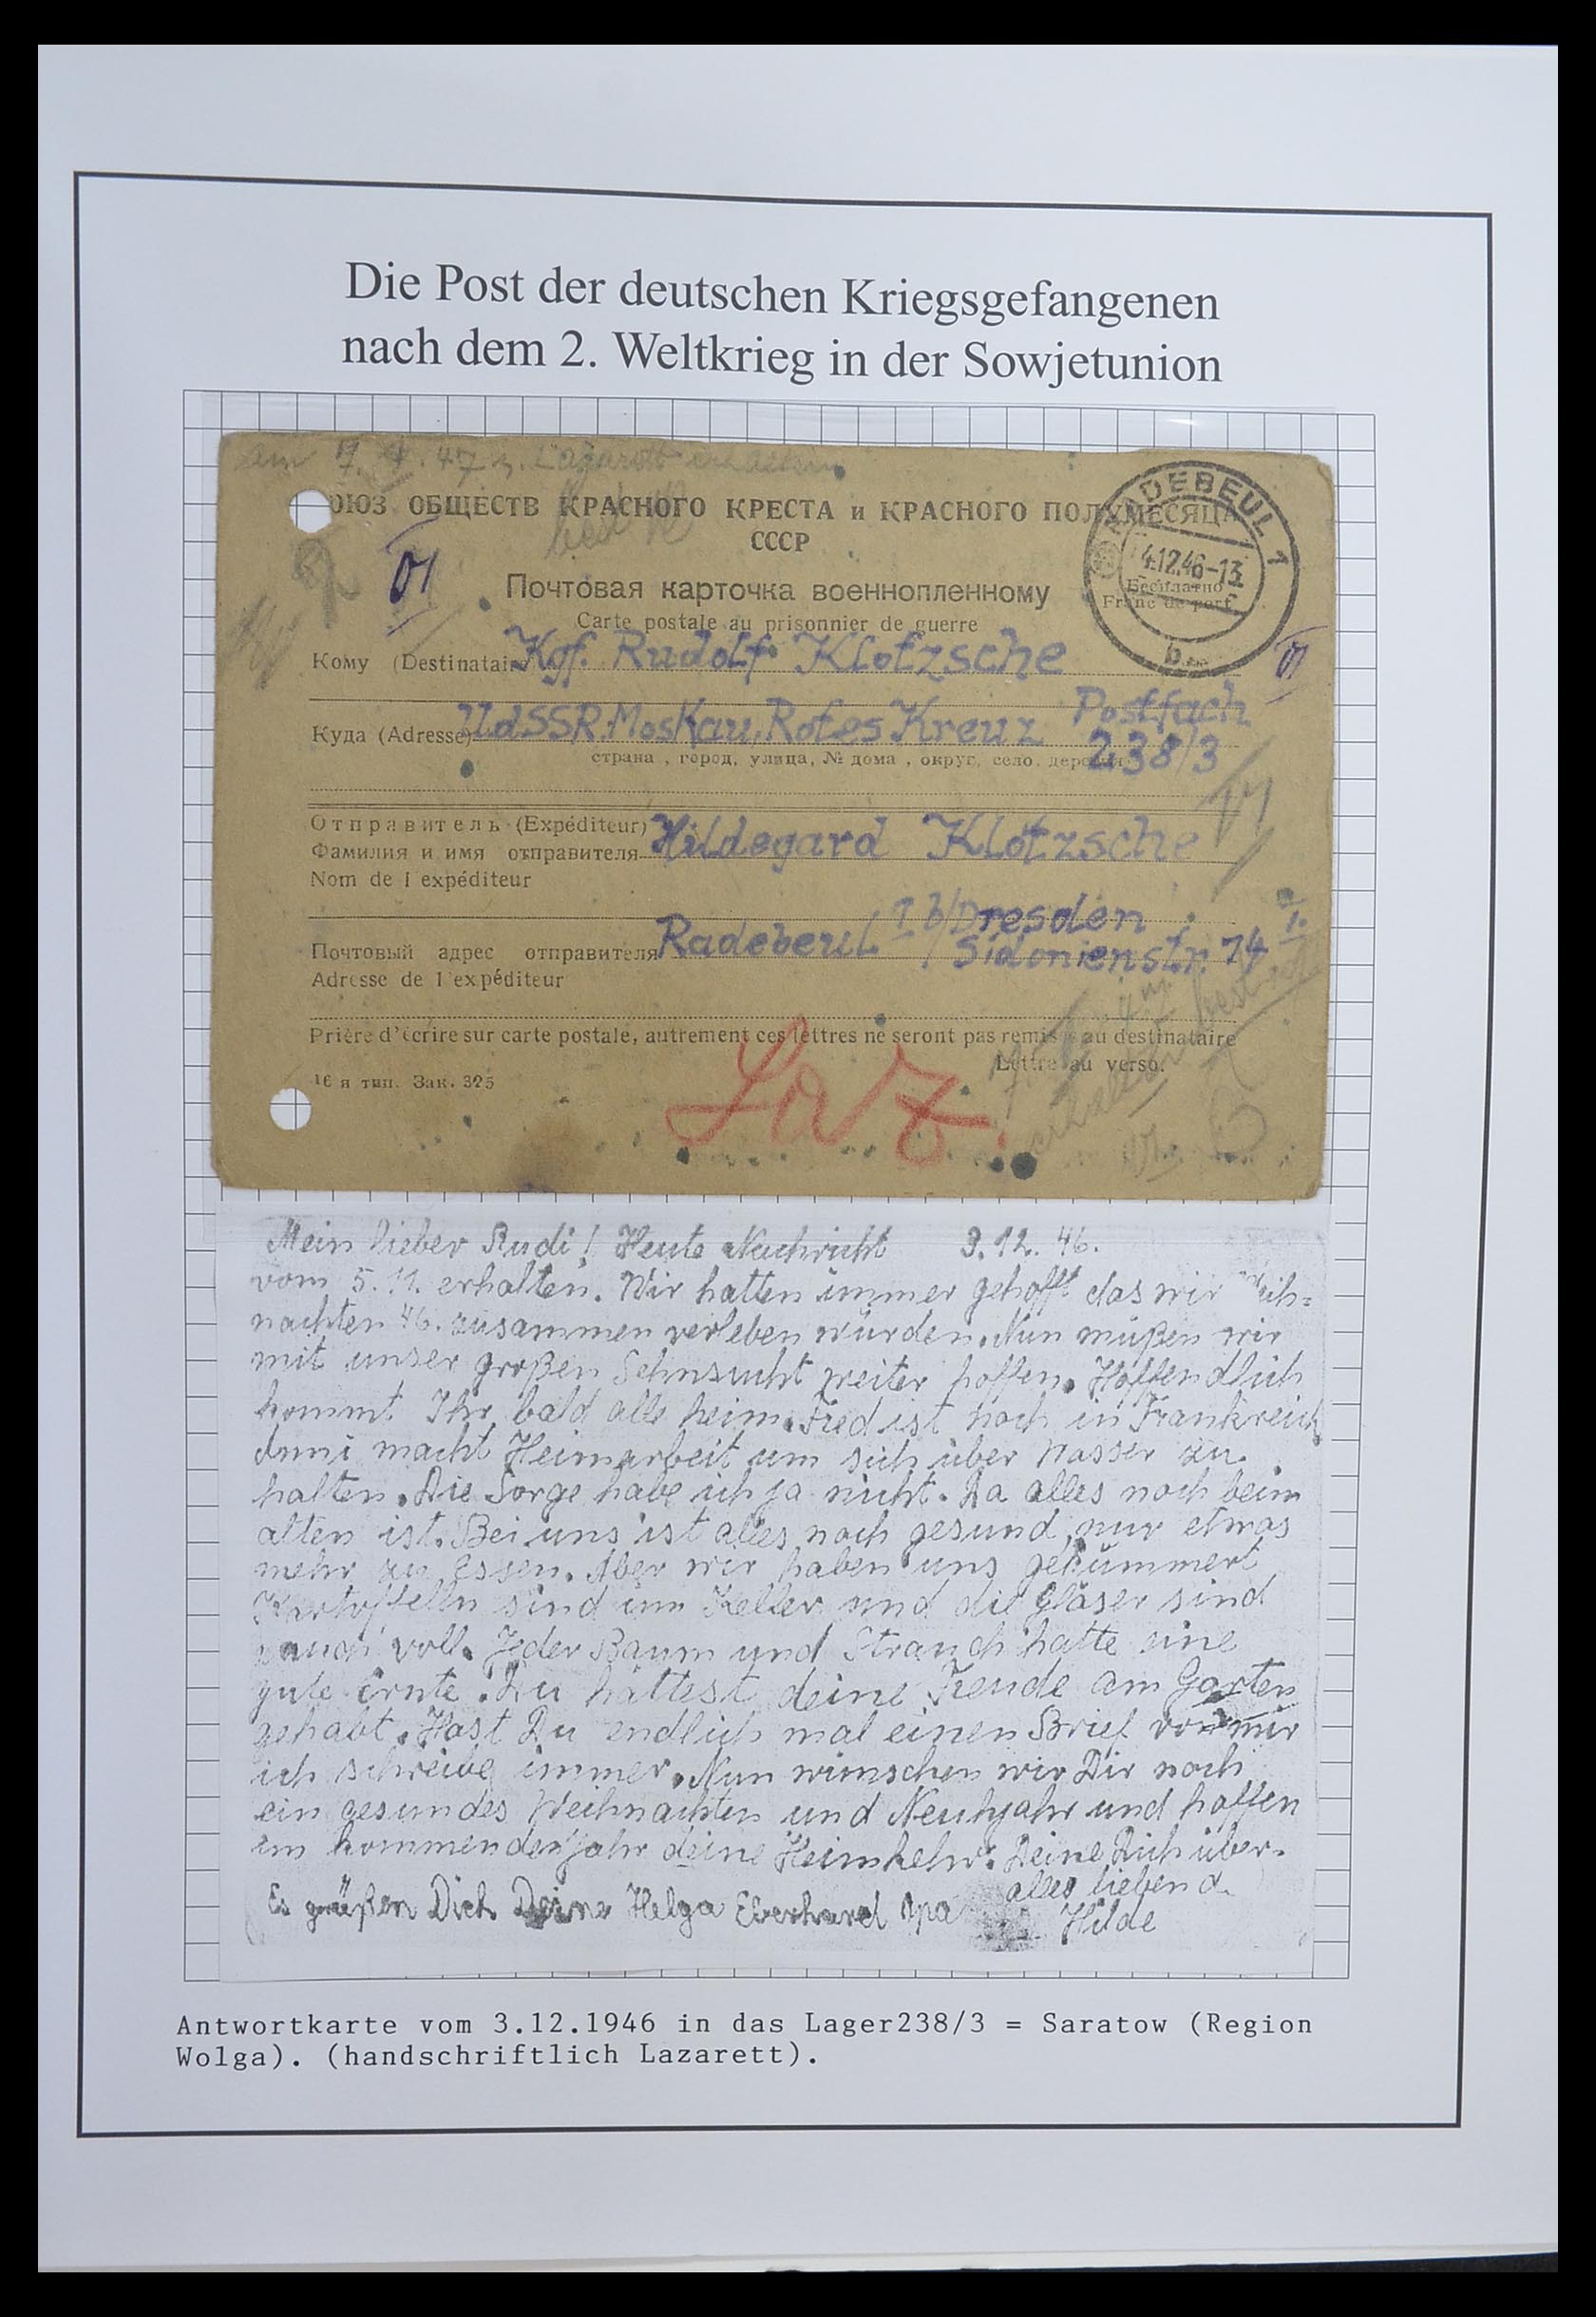 Die Post der deutschen Kriegsgefangenen
nach dem 2. Weltkrieg in der Sowjetunion
am 7. 4. 47 Lazarett erhalten
ОЮЗ ОБЩЕСТВ КРАСНОГО КРЕСТА и КРАСНОГО ПОЛУМЕСЯЦА
СССР
RADEBEUL 1
4.12.46-13
b
Бесплатно
Franc de port
Почтовая карточка военнопленному
Carte postale au prisonnier de guerre
Кому (Destinataire) Kgf. Rudolf Klotzsche
Куда (Adresse) UdSSR. Moskau, Rotes Kreuz Postfach
238/3
страна , город, улица, № дома , округ, село, деревня
Отправитель (Expéditeur)
Фамилия и имя отправителя Hildegard Klotzsche
Nom de l expéditeur
Почтовый адрес отправителя Radebeul 1 b/Dresden
Sidonienstr. 74
Adresse de l'expéditeur
Prière d'écrire sur carte postale, autrement ces lettres ne seront pas remises au destinataire
Lettre au verso.
16 я тип. Зак. 325
Laz.
Mein lieber Rudi! Heute Nachricht 3.12.46.
vom 5.11. erhalten. Wir hatten immer gehofft das wir Weih=
nachten 46. zusammen verleben würden. Nun müßen wir
mit unser großen Sehnsucht weiter hoffen. Hoffendlich
kommt Ihr bald alle heim. Fred ist noch in Frankreich
Anni macht Heimarbeit um sich über Wasser zu
halten. Die Sorge habe ich ja nicht. Da alles noch beim
alten ist. Bei uns ist alles noch gesund, nur etwas
mehr zu Essen. Aber wir haben uns gekümmert
Kartoffeln sind im Keller und die Gläser sind
auch voll. Jeder Baum und Strauch hatte eine
gute Ernte. Du hättest deine Freude am Garten
gehabt. Hast Du endlich mal einen Brief von mir
ich schreibe immer. Nun wünschen wir Dir noch
ein gesundes Weihnachten und Neuhjahr und hoffen
im kommenden Jahr deine Heimkehr. Deine Dich über-
alles liebend.
Es grüßen Dich Deine Helga Eberhard Opa Hilde
Antwortkarte vom 3.12.1946 in das Lager238/3 = Saratow (Region
Wolga). (handschriftlich Lazarett).